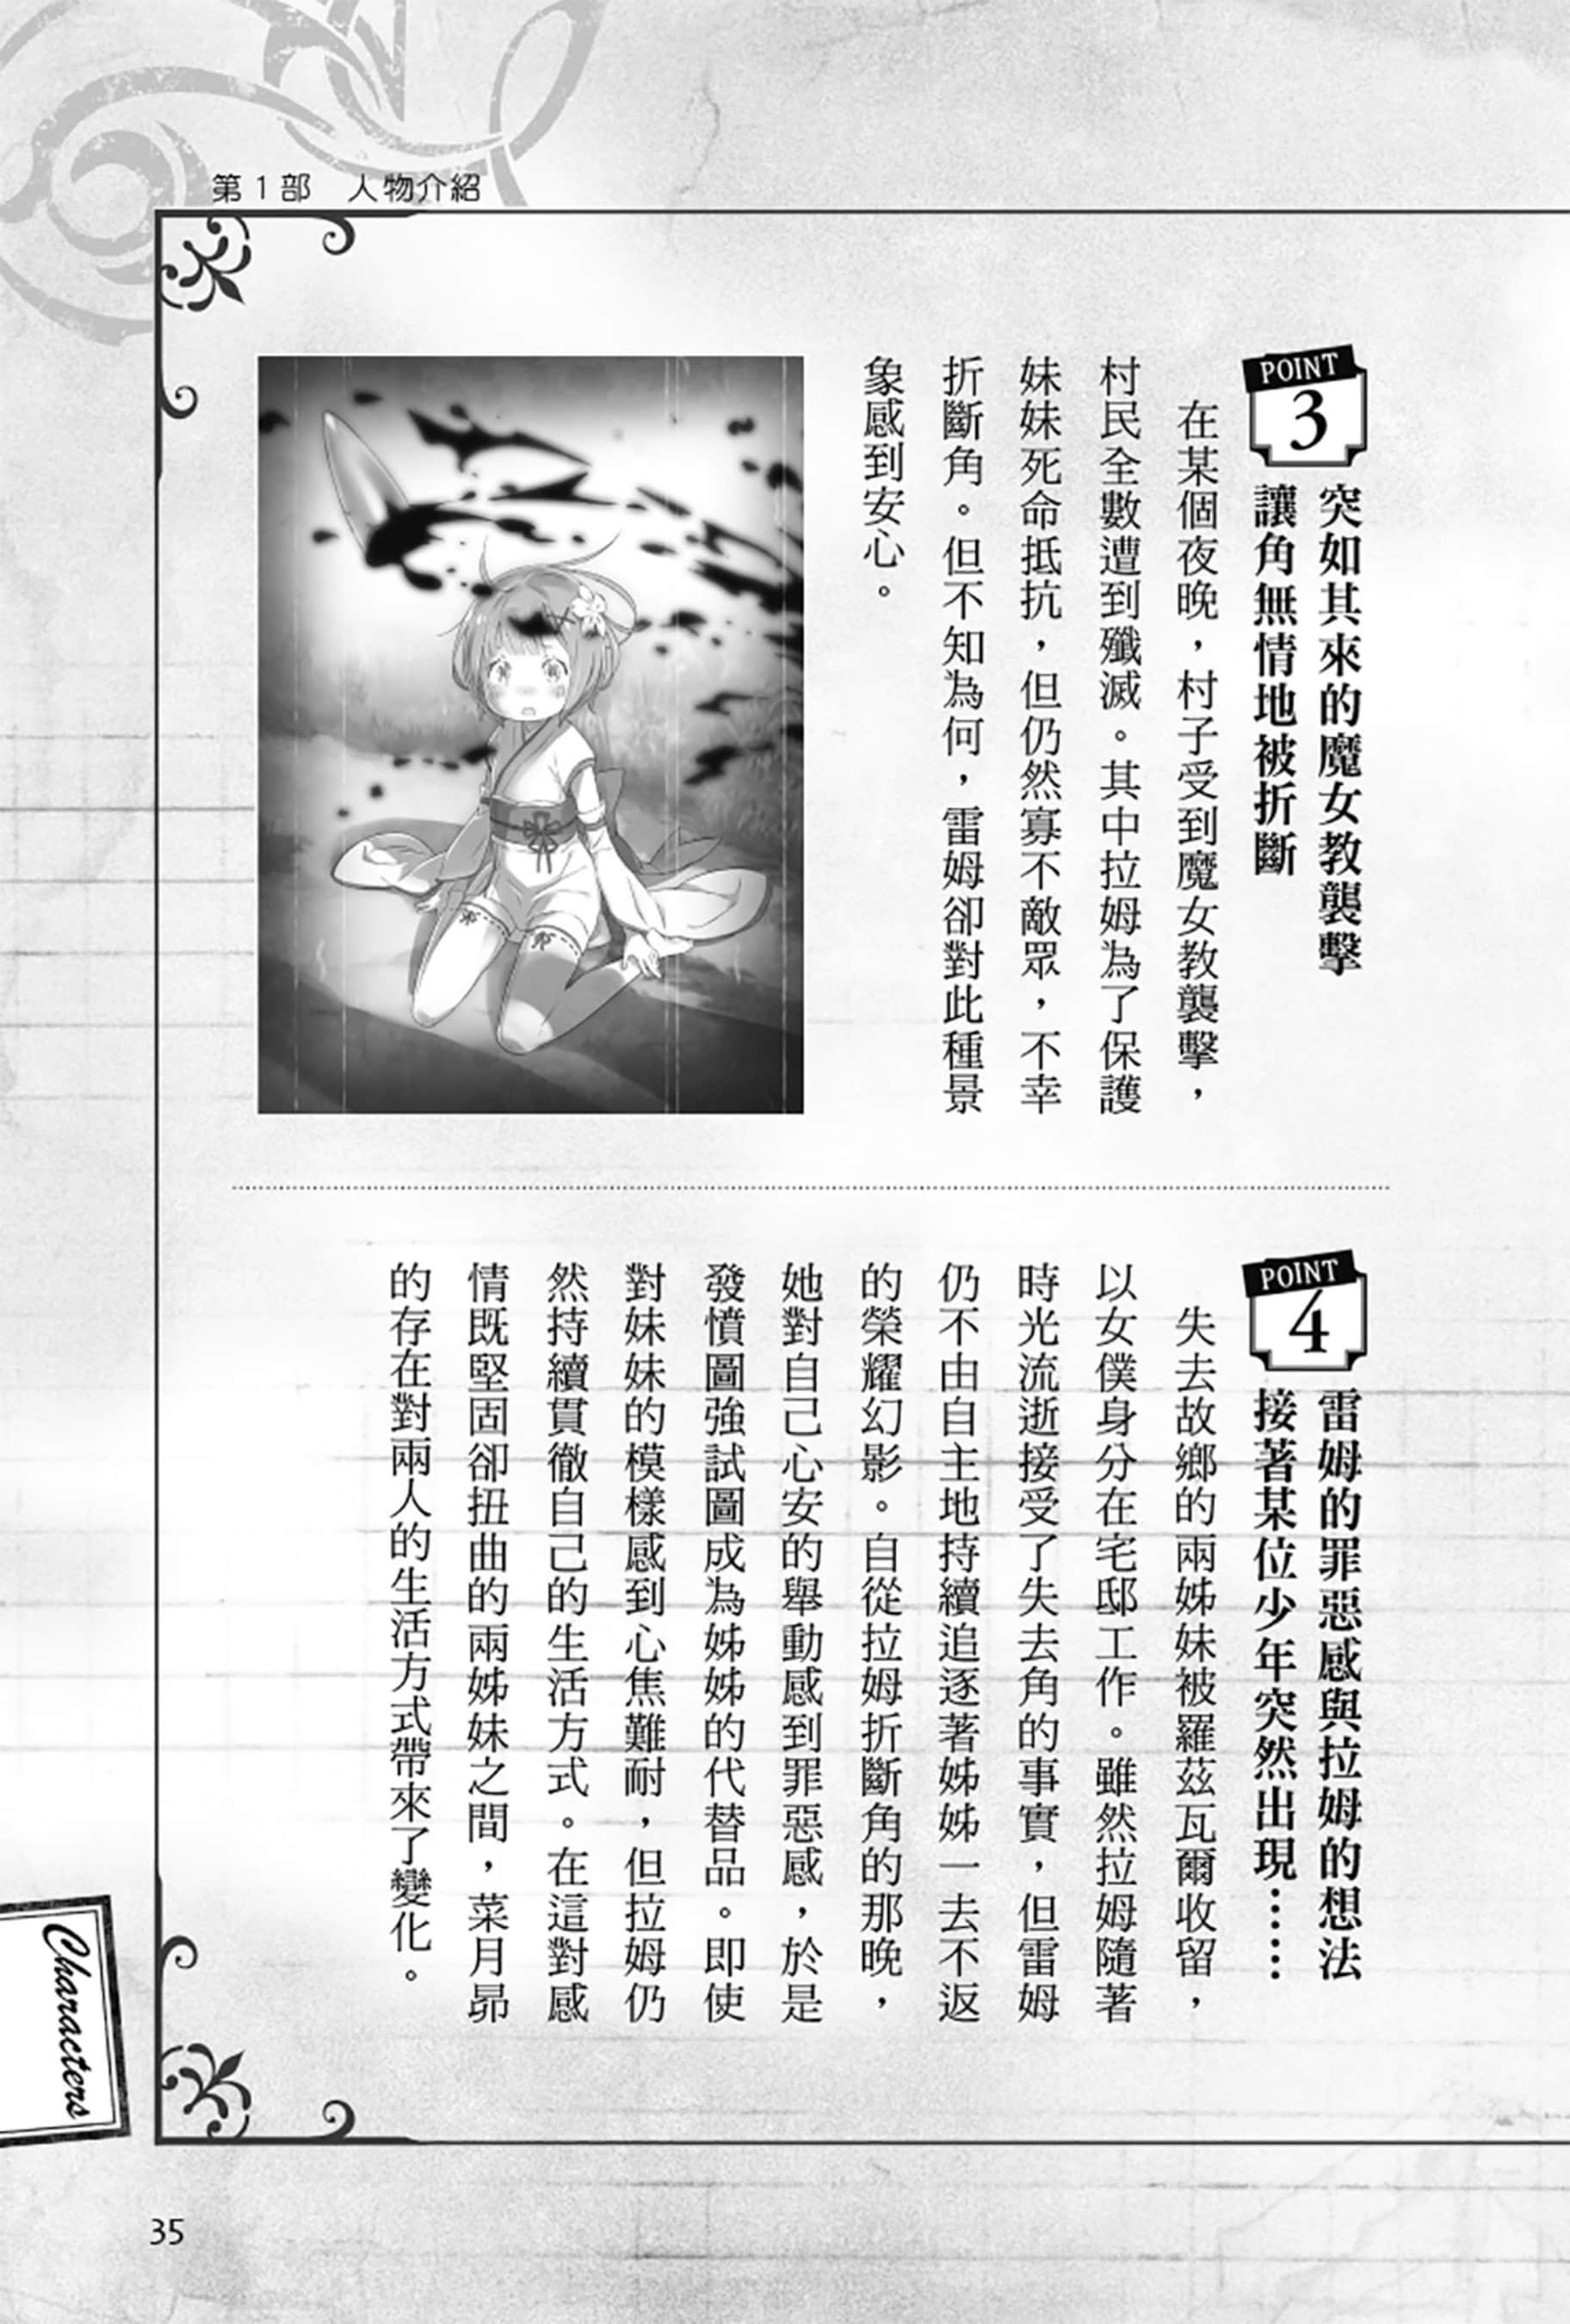 第1部　人物介紹
POINT
3
突如其來的魔女教襲擊
讓角無情地被折斷
在某個夜晚，村子受到魔女教襲擊，
村民全數遭到殲滅。其中拉姆為了保護
妹妹死命抵抗，但仍然寡不敵眾，不幸
折斷角。但不知為何，雷姆卻對此種景
象感到安心。
POINT
4
雷姆的罪惡感與拉姆的想法
接著某位少年突然出現……
失去故鄉的兩姊妹被羅茲瓦爾收留，
以女僕身分在宅邸工作。雖然拉姆隨著
時光流逝接受了失去角的事實，但雷姆
仍不由自主地持續追逐著姊姊一去不返
的榮耀幻影。自從拉姆折斷角的那晚，
她對自己心安的舉動感到罪惡感，於是
發憤圖強試圖成為姊姊的代替品。即使
對妹妹的模樣感到心焦難耐，但拉姆仍
然持續貫徹自己的生活方式。在這對感
情既堅固卻扭曲的兩姊妹之間，菜月昴
的存在對兩人的生活方式帶來了變化。
Characters
35